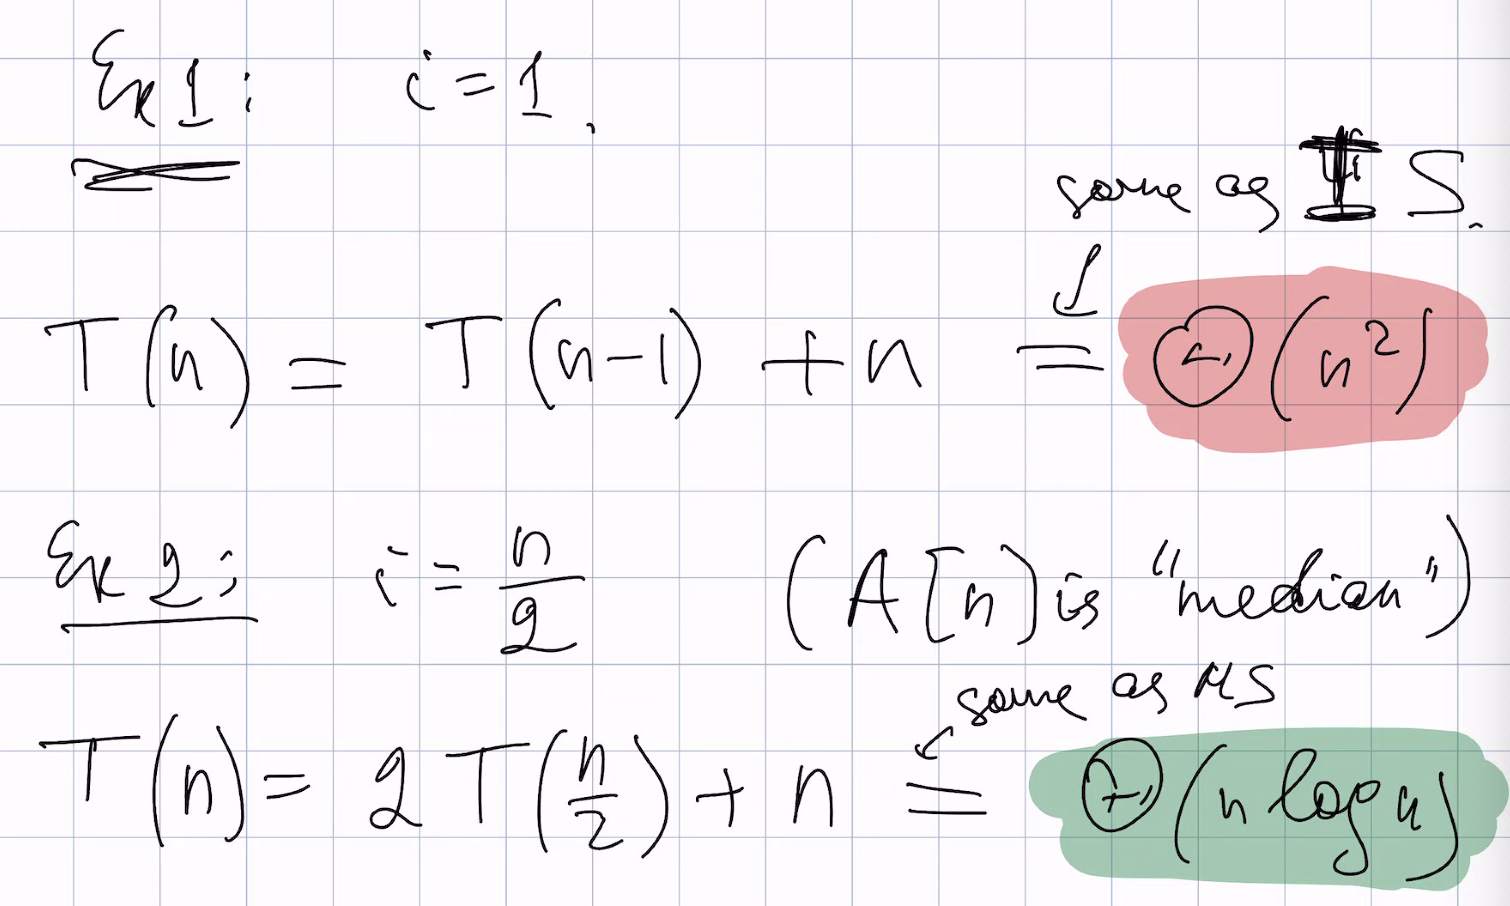 Ex 1: i = 1.
same as IS.
T(n) = T(n-1) + n = Θ(n²)
Ex 2: i = n/2 (A[n] is "median")
same as MS
T(n) = 2T(n/2) + n = Θ(n log n)